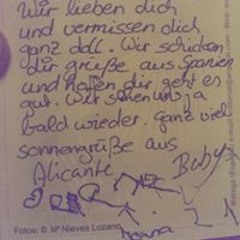 Wir lieben dich
und vermissen dich
ganz doll. Wir schicken
dir grüße aus Spanien
und hoffen dir geht es
gut. Wir sehen uns ja
bald wieder. ganz viel
sonnengrüße aus
Alicante
Fotos: © Mª Nieves Lozano